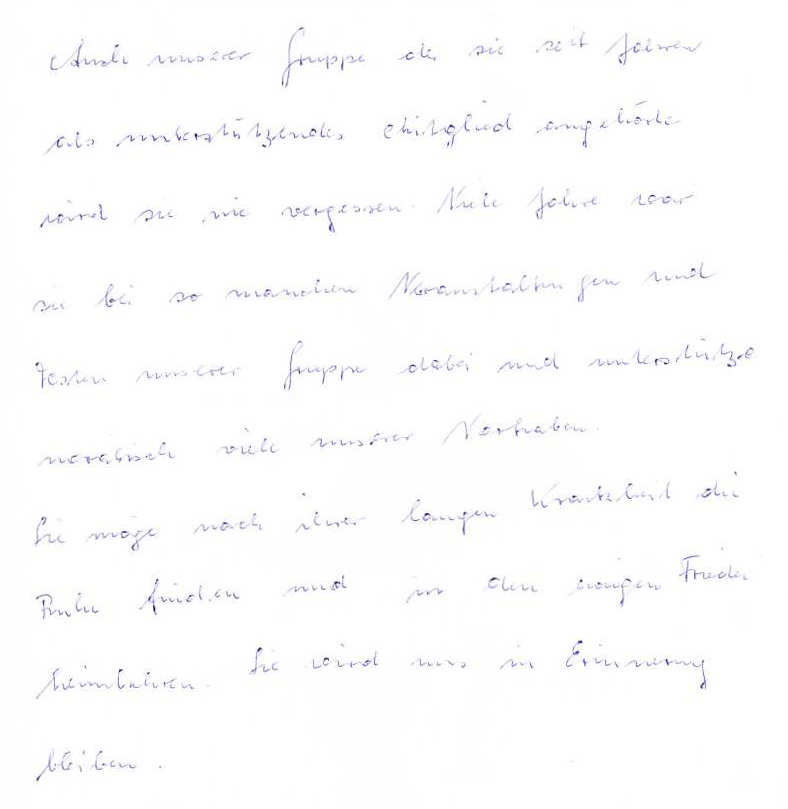 Auch unserer Gruppe der sie seit Jahren
als unterstützendes Mitglied angehörte
wird sie nie vergessen. Viele Jahre war
sie bei so manchen Veranstaltungen und
Festen unserer Gruppe dabei und unterstütze
moralisch viele unserer Vorhaben.
Sie möge nach ihrer langen Krankheit die
Ruhe finden und in den ewigen Frieden
heimkehren. Sie wird uns in Erinnerung
bleiben.